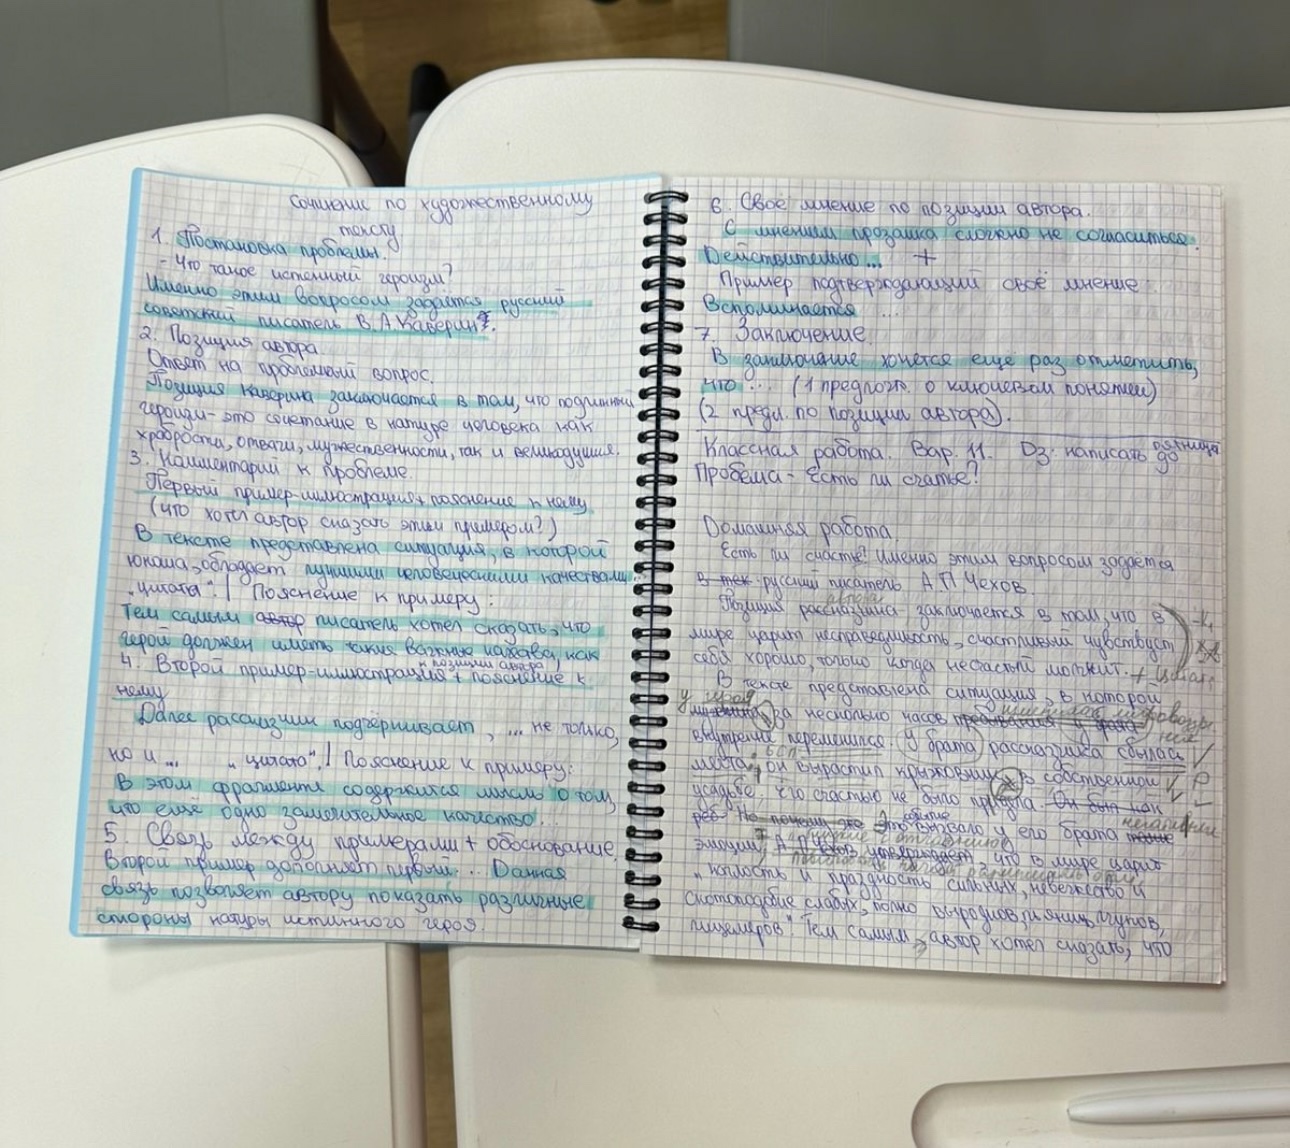 Сочинение по художественному
тексту
1. Постановка проблемы.
- Что такое истенный героизм?
Именно этим вопросом задаётся русский
советский писатель В.А Каверин.
2. Позиция автора
Ответ на проблемный вопрос.
Позиция Каверина заключается в том, что подлинный
героизм - это сочетание в натуре человека как
храбрости, отваги, мужественности, так и великодушия.
3. Комментарий к проблеме.
Первый пример-иллюстрация + пояснение к нему
(что хотел автор сказать этим примером?)
В тексте представлена ситуация, в которой
юноша, обладает лучшими человеческими качествами...
"цитата".! Пояснение к примеру:
Тем самым автор писатель хотел сказать, что
герой должен иметь такие важные качества, как
к позиции автора
4. Второй пример-иллюстрация + пояснение к
нему
Далее рассказчик подчёркивает, ... не только,
но и ... "цитата".! Пояснение к примеру:
В этом фрагменте содержится мысль о том,
что ещё одно замечательное качество...
5. Связь между примерами + обоснование.
Второй пример дополняет первый... Данная
связь позволяет автору показать различные
стороны натуры истинного героя.
6. Своё мнение по позиции автора.
С мнением прозаика сложно не согласиться.
Действительно... +
Пример подтверждающий своё мнение
Вспоминается ...
7. Заключение.
В заключание хочется ещё раз отметить,
что ... (1 предлож. о ключевом понятии)
(2 предл. по позиции автора).
Классная работа. Вар. 11. Дз. написать до пятница
Пробема - Есть ли счатье?
Домашняя работа.
Есть ли счастье? Именно этим вопросом задаётся
в тек русский писатель А.П Чехов.
автора
Позиция рассказчика заключается в том, что в
мире царит несправедливость, счастливый чувствует
себя хорошо, только когда несчастый молчит. + цитат.
В тексте представлена ситуация, в которой
у героя
за несколько часов
внутренне переменился. У брата рассказчика сбылась
мечта, он вырастил крыжовник в собственной
усадьбе, его счастью не было предела. Он был как
событие
реб Но почему это Это вызвало у его брата
эмоции, что в мире царит
"наглость и праздность сильных, невежество и
скотоподобие слабых, полно выродков, пьяниц, лгунов,
лицемеров" Тем самым, автор хотел сказать, что